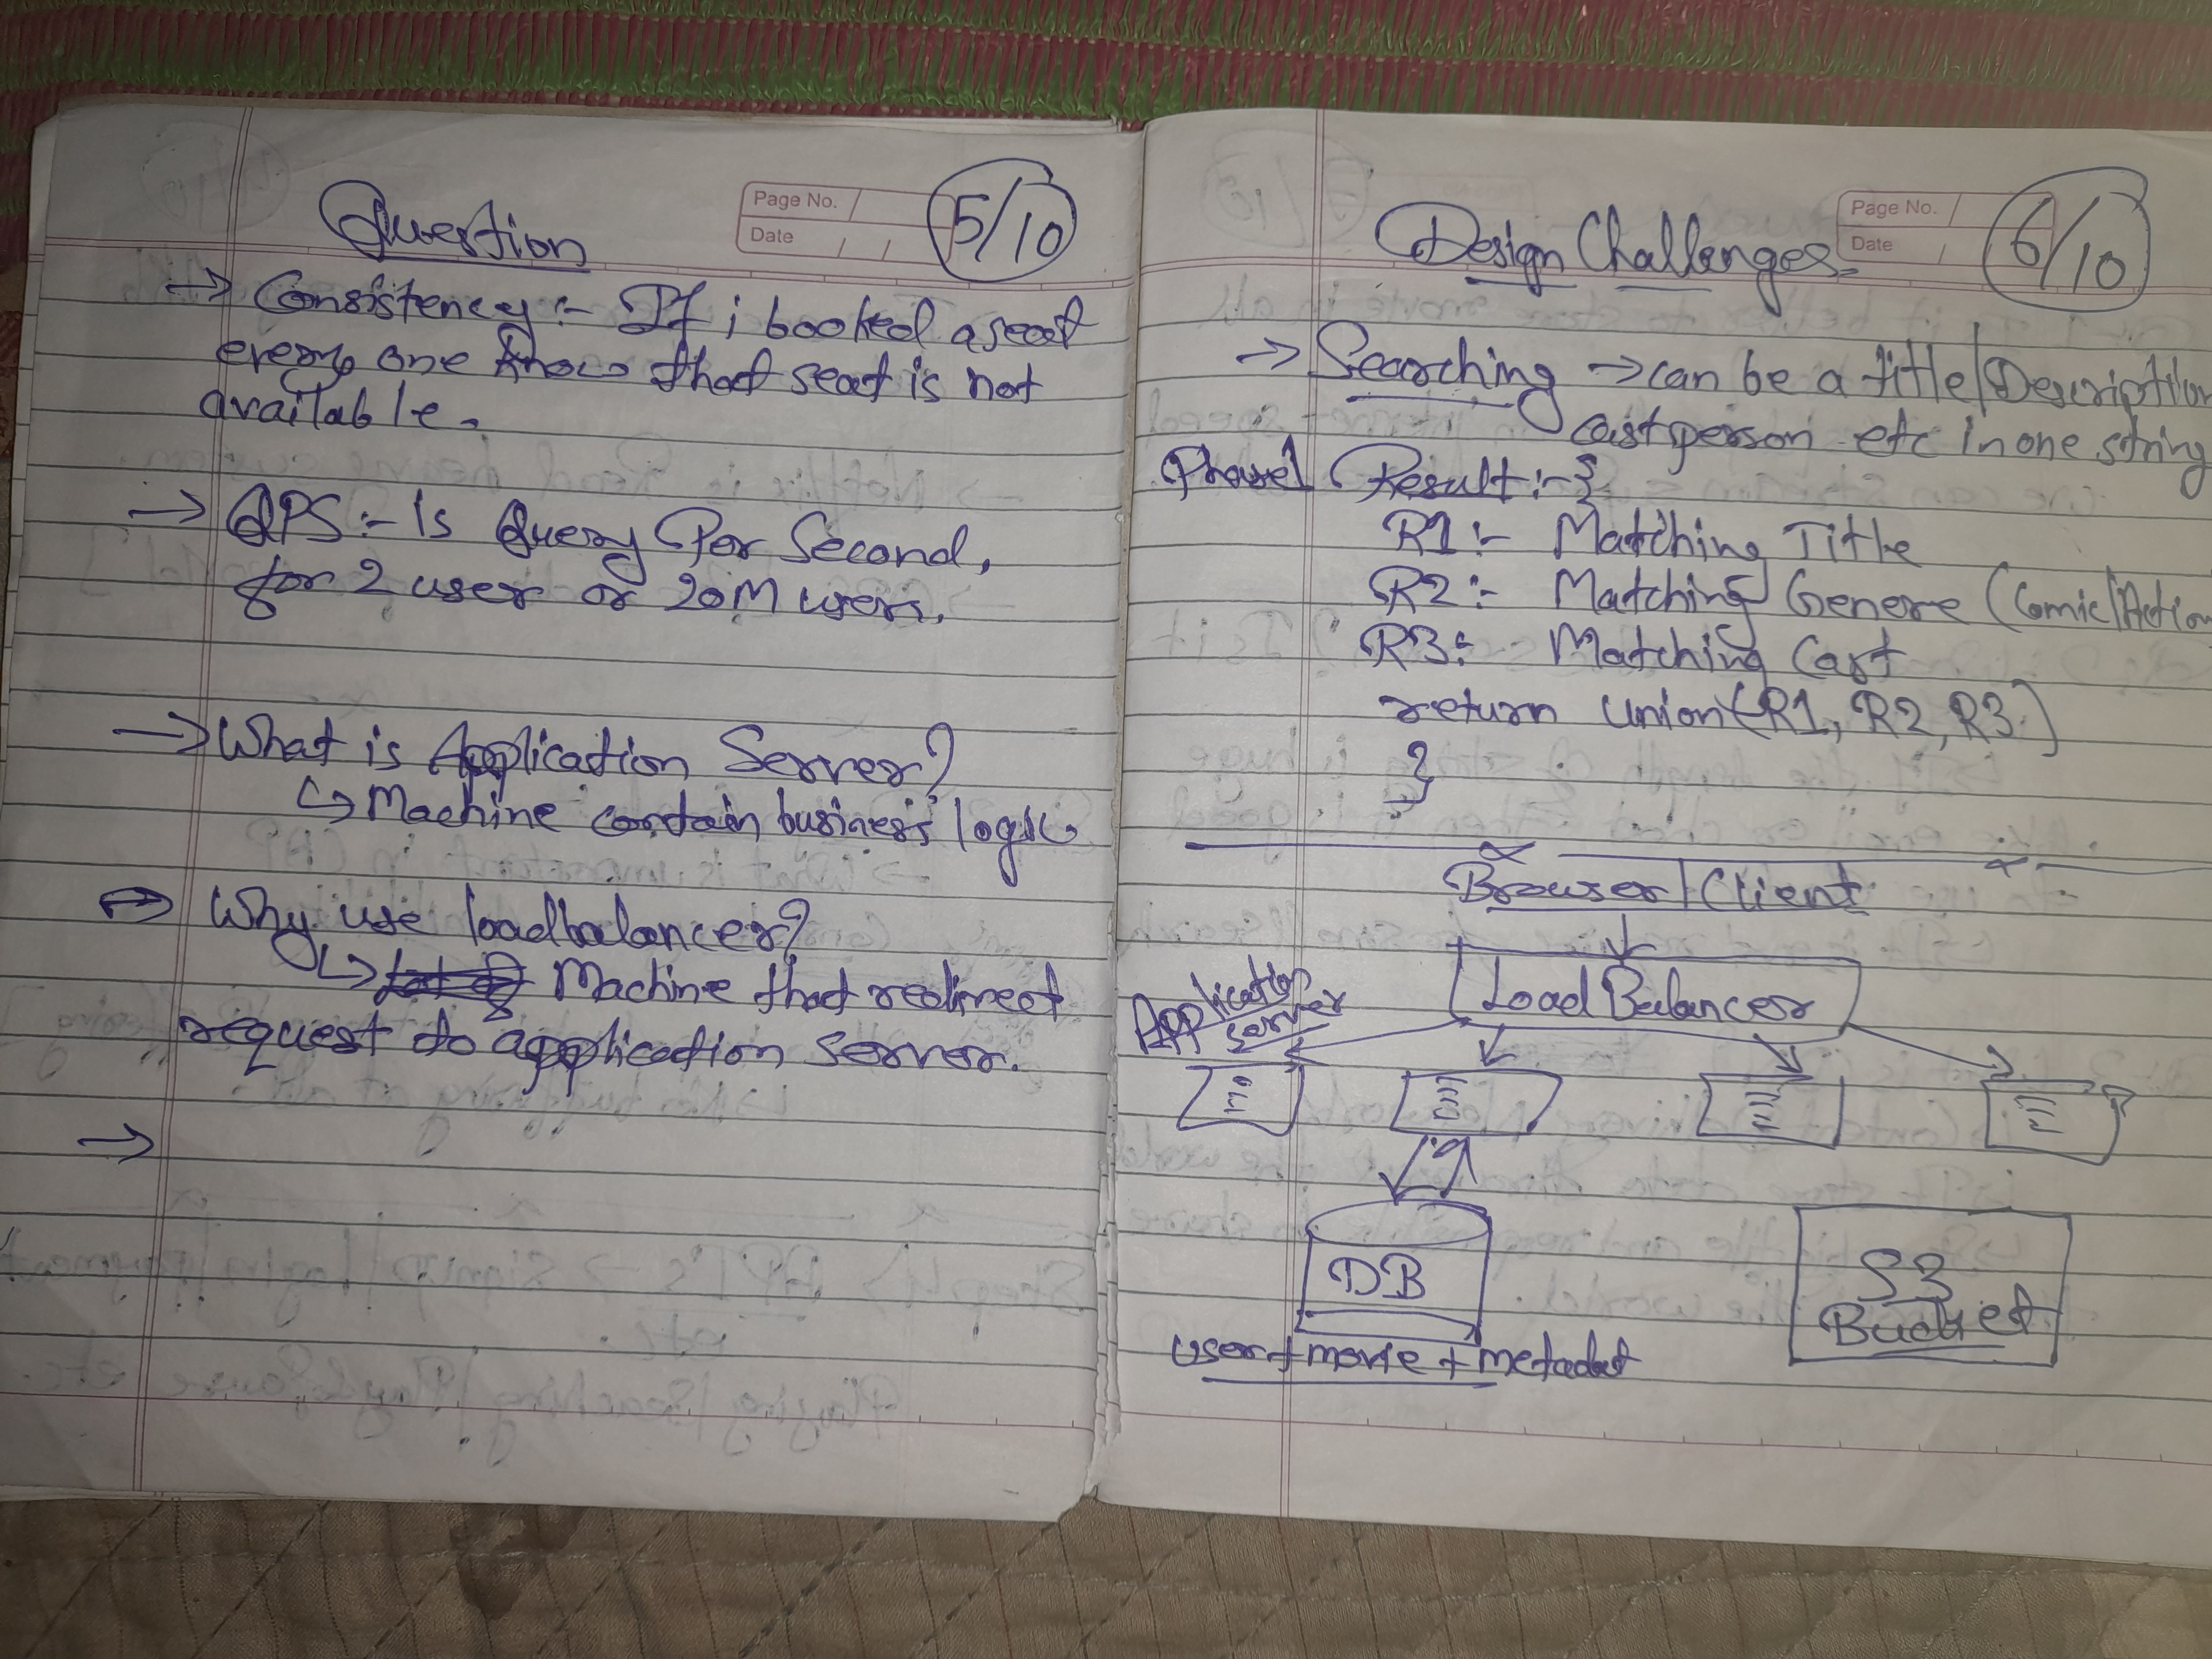 Question
Page No.
Date / /
5/10
→ Consistency :- If i booked a seat
every one know that seat is not
available.
→ QPS :- Is Query Per Second,
for 2 user or 20M users.
→ What is Application Server?
↳ Machine contain business logic
→ Why use loadbalancer?
↳ Machine that redirect
request to application server.
→
Design Challenges
Page No.
Date /
6/10
→ Searching → can be a title/Description
cast person etc in one string
Phase1 Result :- {
R1 :- Matching Title
R2 :- Matching Genere (Comic/Action
R3 :- Matching Cast
return union(R1, R2, R3)
}
Browser/Client
Load Balancer
Application
server
DB
user + movie + metadat
S3
Bucket